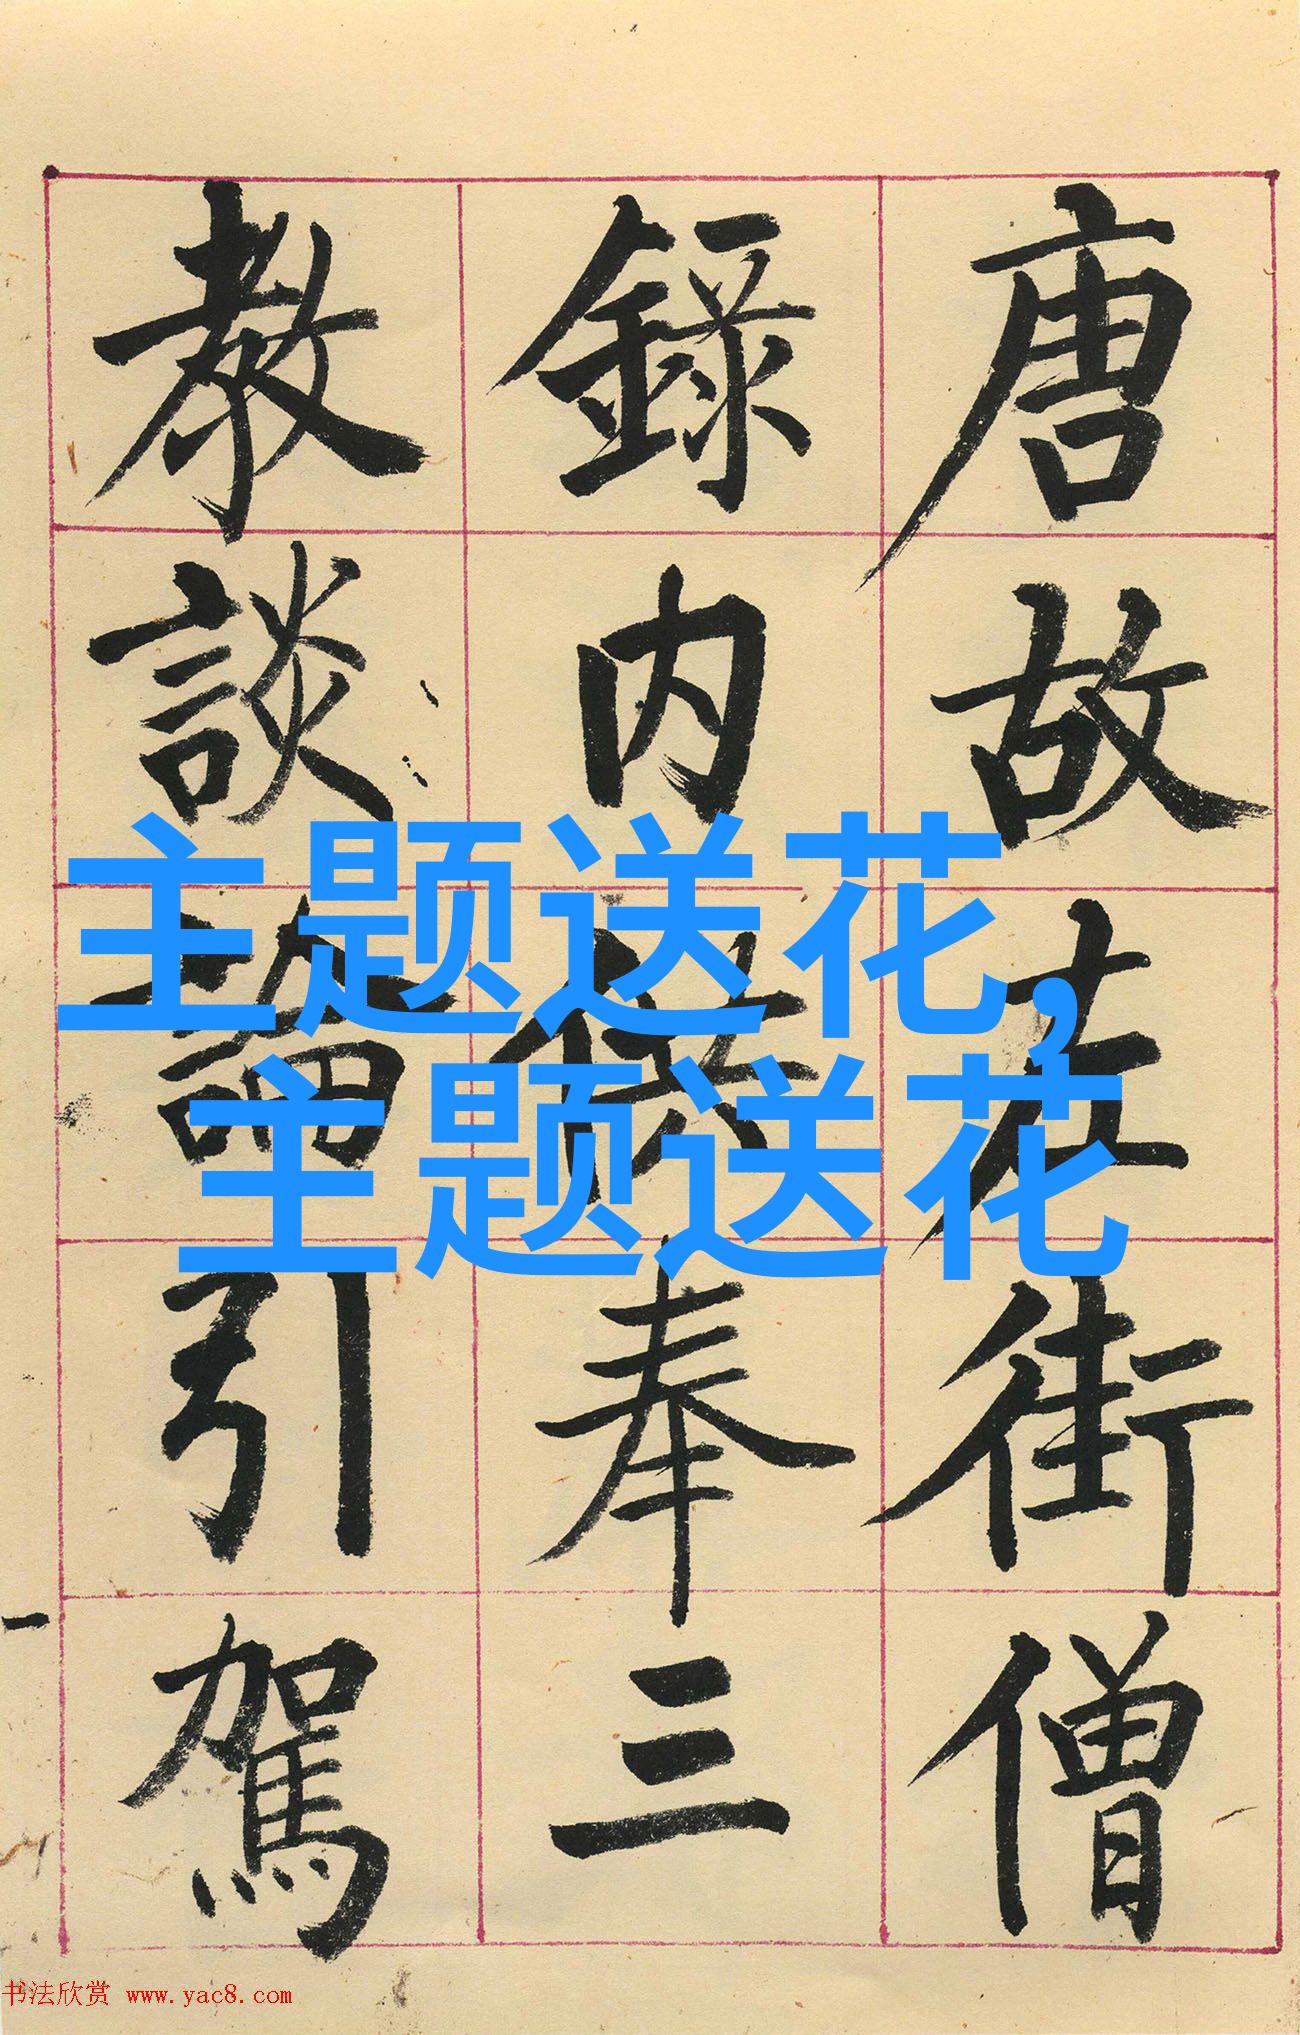 唐故左街僧
錄内供奉三
教談論引駕
主题送花,
主题送花
书法欣赏 www.yac8.com